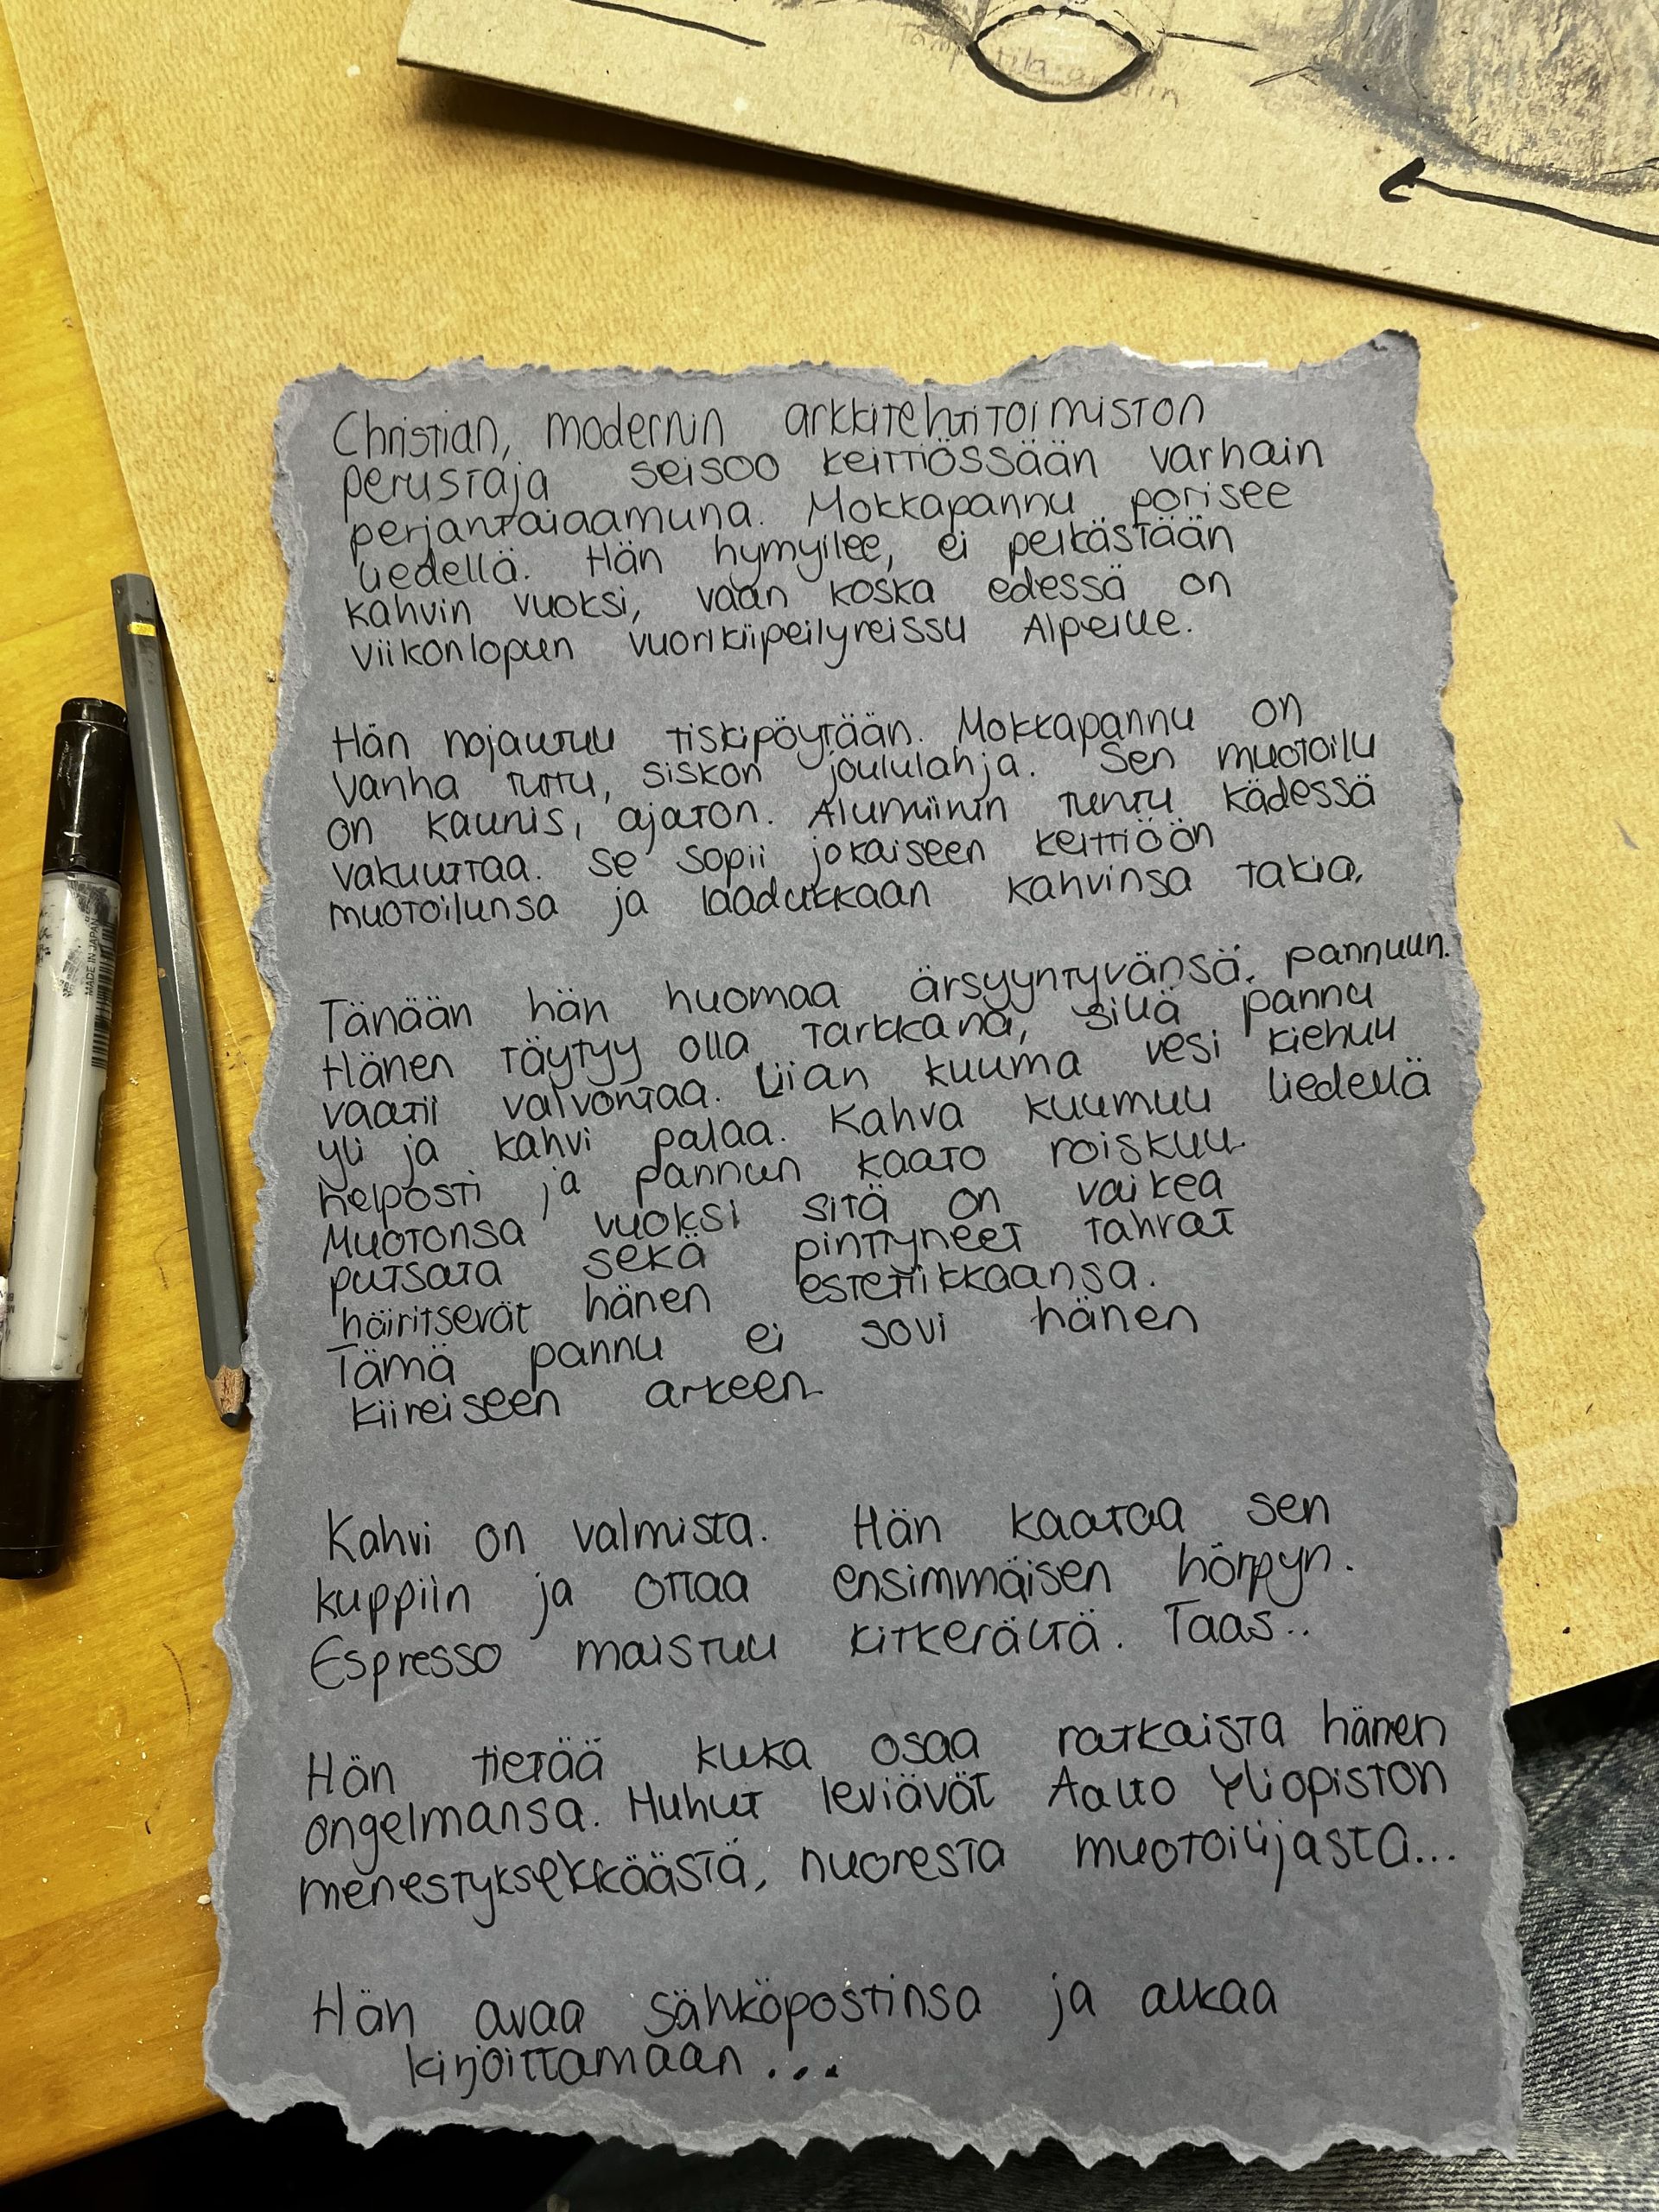 Christian, modernin arkkitehtitoimiston
perustaja seisoo keittiössään varhain
perjantaiaamuna. Mokkapannu porisee
liedellä. Hän hymyilee, ei pelkästään
kahvin vuoksi, vaan koska edessä on
viikonlopun vuorikiipeilyreissu Alpeille.
Hän nojautuu tiskipöytään. Mokkapannu on
vanha tuttu, siskon joululahja. Sen muotoilu
on kaunis, ajaton. Alumiinin tuntu kädessä
vakuuttaa. Se sopii jokaiseen keittiöön
muotoilunsa ja laadukkaan kahvinsa takia.
Tänään hän huomaa ärsyyntyvänsä pannuun.
Hänen täytyy olla tarkkana, sillä pannu
vaatii valvontaa. Liian kuuma vesi kiehuu
yli ja kahvi palaa. Kahva kuumuu liedellä
helposti ja pannun kaato roiskuu.
Muotonsa vuoksi sitä on vaikea
putsata sekä pinttyneet tahrat
häiritsevät hänen estetiikkaansa.
Tämä pannu ei sovi hänen
kiireiseen arkeen.
Kahvi on valmista. Hän kaataa sen
kuppiin ja ottaa ensimmäisen hörpyn.
Espresso maistuu kitkerältä. Taas..
Hän tietää kuka osaa ratkaista hänen
ongelmansa. Huhut leviävät Aalto Yliopiston
menestyksekkäästä, nuoresta muotoilijasta...
Hän avaa sähköpostinsa ja alkaa
kirjoittamaan...
MADE IN JAPAN